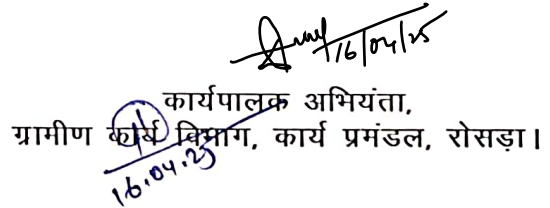 16/04/25
कार्यपालक अभियंता,
ग्रामीण कार्य विभाग, कार्य प्रमंडल, रोसड़ा।
16.04.25